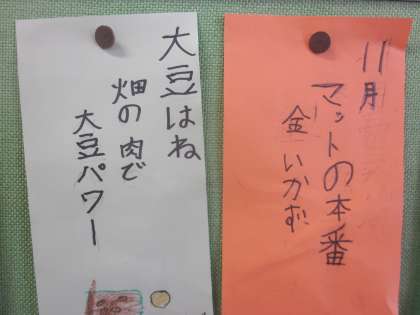 11月
マットの本番
金いかむ
大豆はね
畑の肉で
大豆パワー